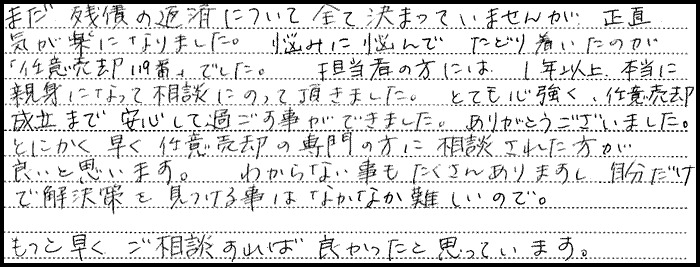 まだ 残債の返済について 全て決まっていませんが 正直
気が楽になりました。 悩みに悩んで たどり着いたのが
「任意売却119番」でした。 担当者の方には 1年以上 本当に
親身になって相談にのって頂きました。 とても心強く、任意売却
成立まで 安心して過ごす事ができました。ありがとうございました。
とにかく早く 任意売却の専門の方に相談された方が
良いと思います。 わからない事もたくさんありますし 自分だけ
で解決策を見つける事はなかなか難しいので。
もっと早く ご相談すれば 良かったと思っています。